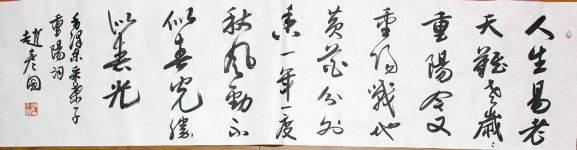 人生易老
天難老歲〻
重陽今又
重陽戰地
黄花分外
香一年一度
秋風勁不
似春光勝
似春光
毛澤東采桑子
重陽詞
趙彦國